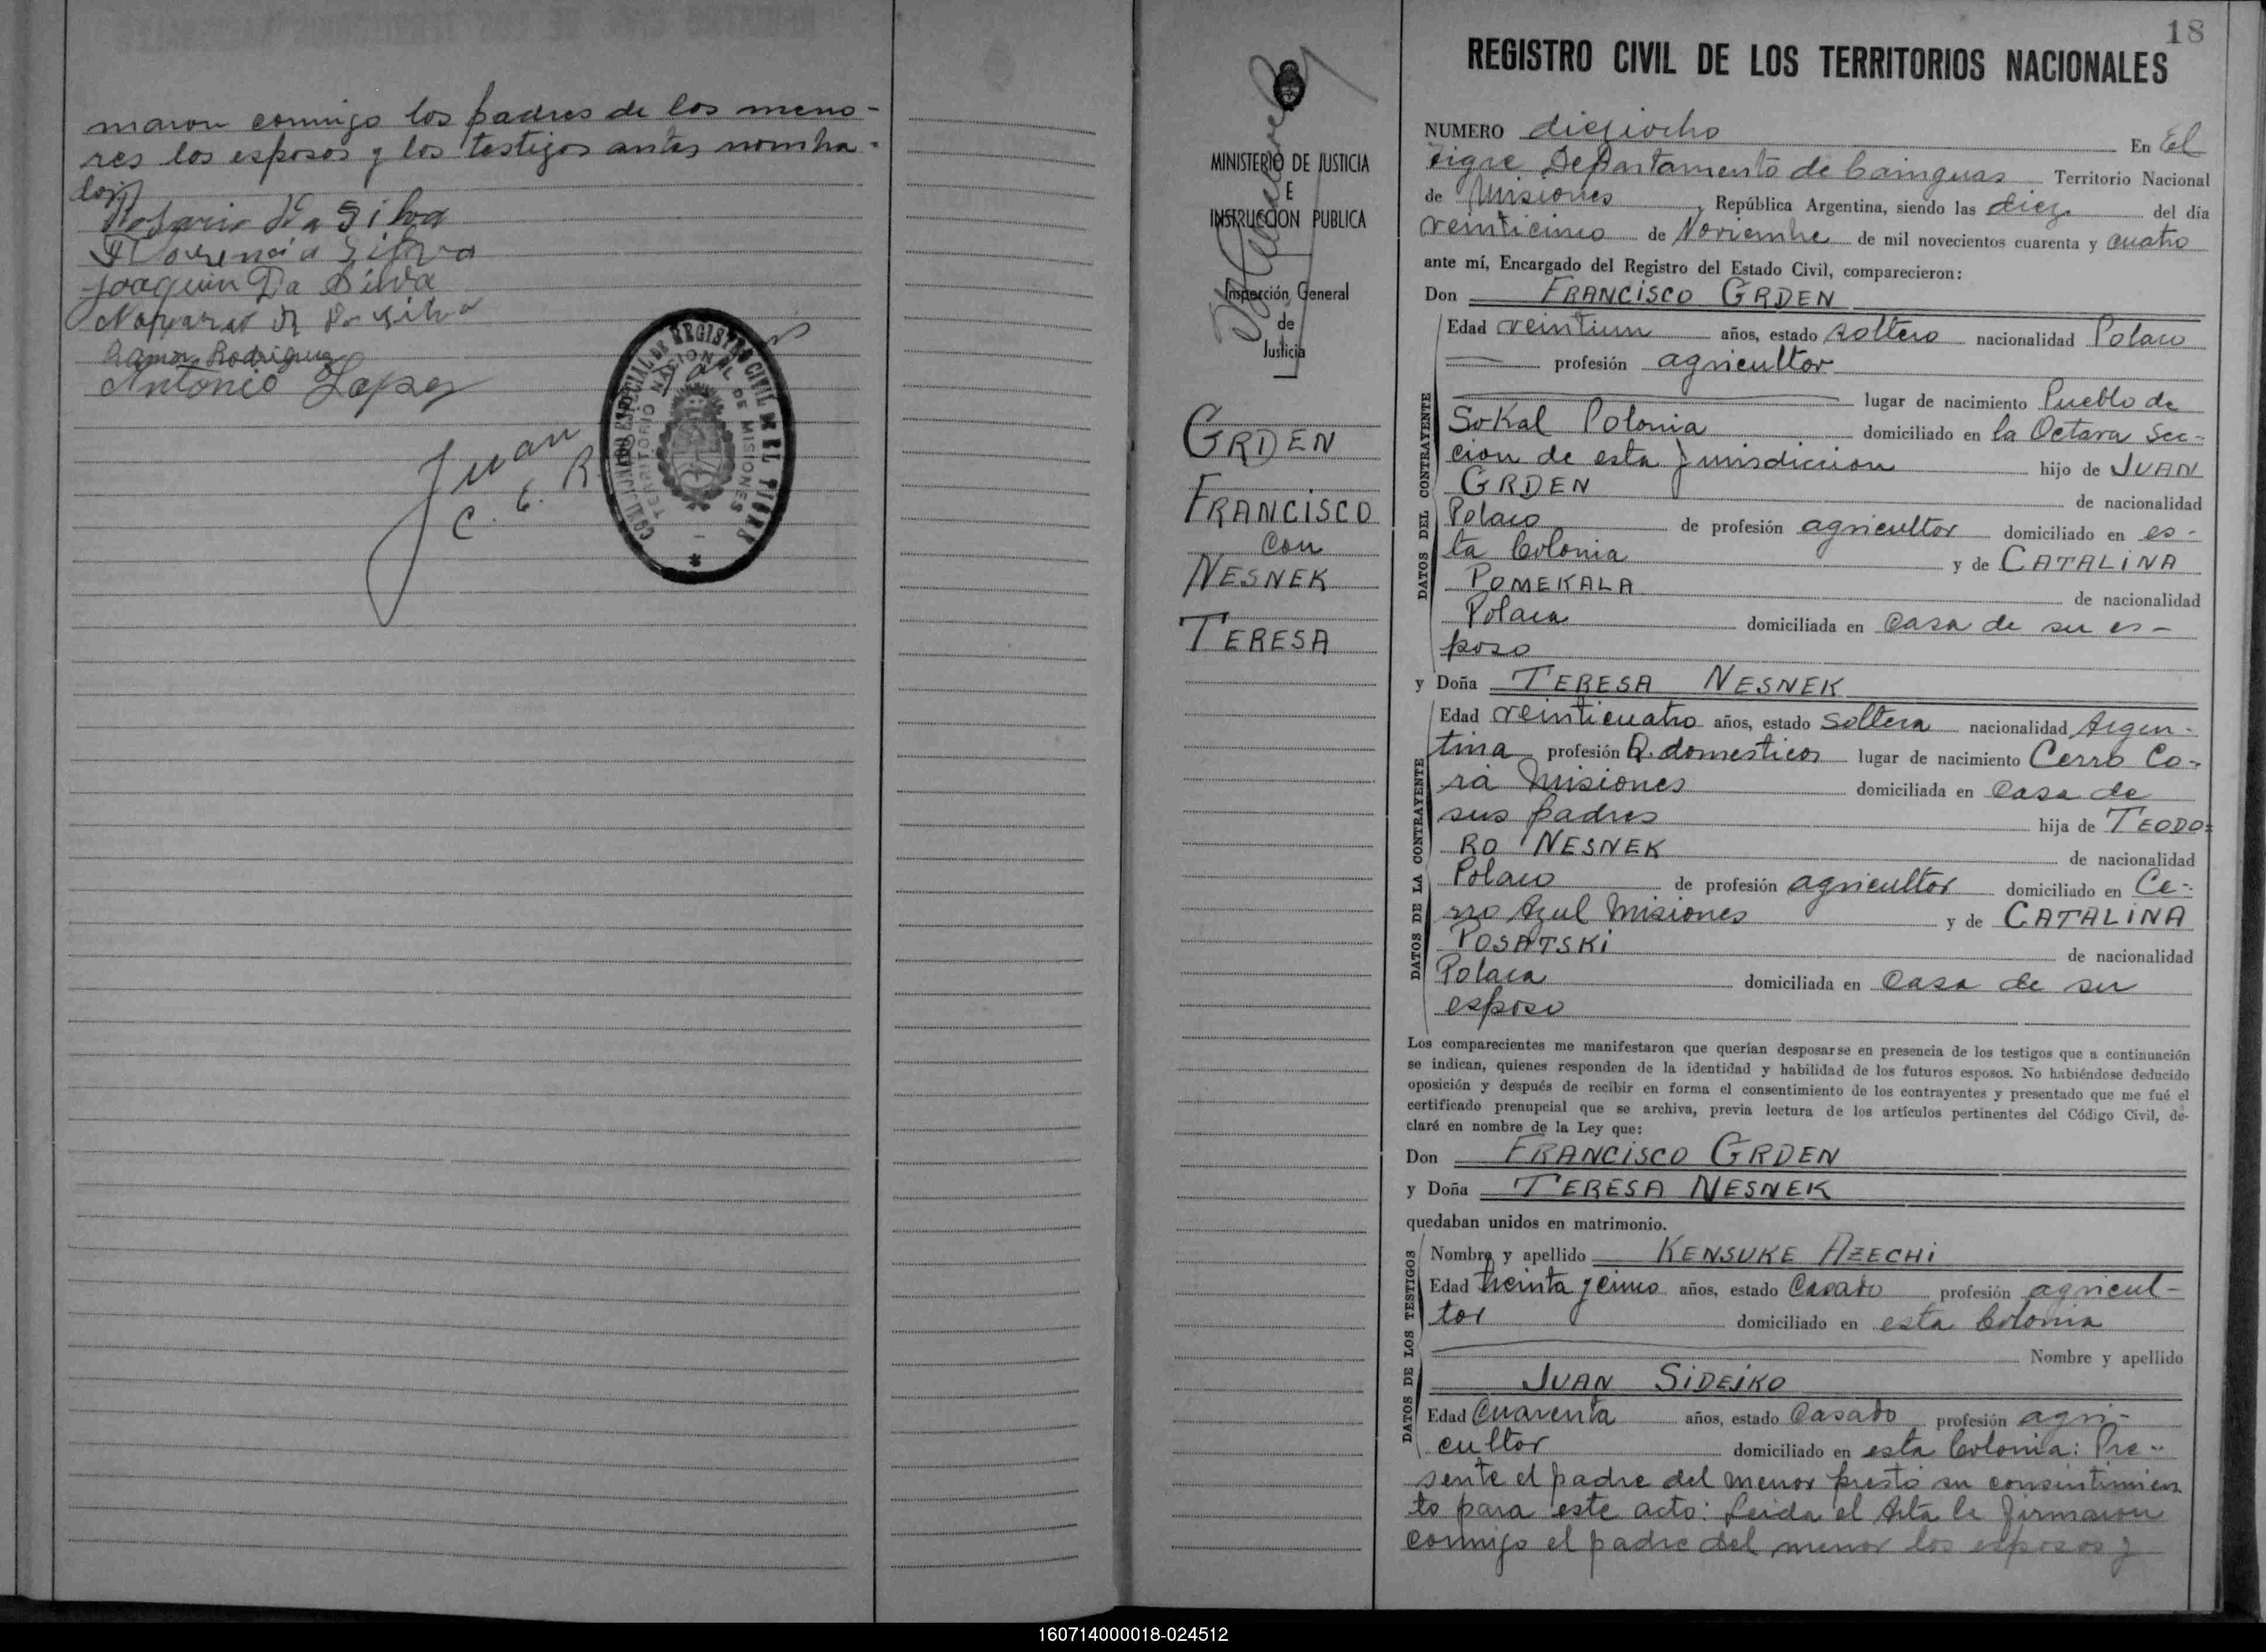 maron conmigo los padres de los meno-
res los esposos y los testigos antes nombra-
dos
Rosario da Silva
Florencia Silva
Joaquin Da Silva
da Silva
Ramon Rodriguez
Antonio Lopez
Juan
C. E. R.
COMISIONADO ESPECIAL DE REGISTRO CIVIL DE EL TIGRE
TERRITORIO NACIONAL DE MISIONES
MINISTERIO DE JUSTICIA
E
INSTRUCCION PUBLICA
Inspección General
de
Justicia
GRDEN
FRANCISCO
con
NESNEK
TERESA
18
REGISTRO CIVIL DE LOS TERRITORIOS NACIONALES
NUMERO dieziocho En El
Tigre Departamento de Cainguas Territorio Nacional
de Misiones, República Argentina, siendo las diez del día
veinticinco de Noviembre de mil novecientos cuarenta y cuatro
ante mí, Encargado del Registro del Estado Civil, comparecieron:
Don FRANCISCO GRDEN
DATOS DEL CONTRAYENTE
Edad veintiun años, estado soltero nacionalidad Polaco
profesión agricultor
lugar de nacimiento Pueblo de
Sokal Polonia domiciliado en la Octava Sec-
cion de esta Jurisdiccion hijo de JUAN
GRDEN de nacionalidad
Polaco de profesión agricultor domiciliado en es-
ta Colonia y de CATALINA
POMEKALA de nacionalidad
Polaca domiciliada en Casa de su es-
poso
y Doña TERESA NESNEK
DATOS DE LA CONTRAYENTE
Edad veinticuatro años, estado Soltera nacionalidad Argen-
tina profesión Q. domesticos lugar de nacimiento Cerro Co-
rá Misiones domiciliada en Casa de
sus padres hija de TEODO=
RO NESNEK de nacionalidad
Polaco de profesión agricultor domiciliado en Ce-
rro Azul Misiones y de CATALINA
POSATSKI de nacionalidad
Polaca domiciliada en Casa de su
esposo
Los comparecientes me manifestaron que querían desposarse en presencia de los testigos que a continuación
se indican, quienes responden de la identidad y habilidad de los futuros esposos. No habiéndose deducido
oposición y después de recibir en forma el consentimiento de los contrayentes y presentado que me fué el
certificado prenupcial que se archiva, previa lectura de los artículos pertinentes del Código Civil, de-
claré en nombre de la Ley que:
Don FRANCISCO GRDEN
y Doña TERESA NESNEK
quedaban unidos en matrimonio.
DATOS DE LOS TESTIGOS
Nombre y apellido KENSUKE AZECHI
Edad treinta y cinco años, estado Casado profesión agricul-
tor domiciliado en esta Colonia
Nombre y apellido
JUAN SIDEJKO
Edad Cuarenta años, estado Casado profesión agri-
cultor domiciliado en esta Colonia: Pre-
sente el padre del menor prestó su consentimien
to para este acto: Leida el Acta la firmaron
conmigo el padre del menor los esposos y
160714000018-024512